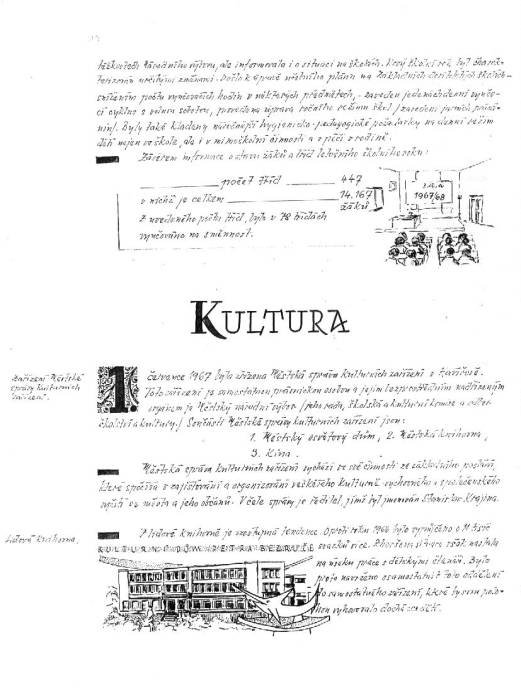 ale informovala i o situaci na školách. Nový školní rok byl charak-
terizován určitými změnami. Došlo k úpravě učebního plánu na základních devítiletých školách -
snížením počtu vyučovacích hodin v některých předmětech, - zaveden jedenáctidenní vyučo-
vací cyklus s volnou sobotou, provedena úprava ročního režimu škol / zavedení jarních prázd-
nin/. Byly také kladeny náročnější hygienicko-pedagogické požadavky na denní režim
dětí nejen ve škole, ale i v mimoškolní činnosti a v péči v rodině.
Závěrem informace o stavu žáků a tříd letošního školního roku:
počet tříd 447
v nichž je celkem 14.167
žáků
š.r.
1967/68
Z uvedeného počtu tříd, bylo v 78 třídách
vyučováno na směnnost.
KULTURA
Zařízení Městské
správy kulturních
zařízení.
1. července 1967 byla zřízena Městská správa kulturních zařízení v Havířově.
Toto zařízení je samostatnou právnickou osobou a jejím bezprostředním nadřízeným
orgánem je Městský národní výbor /jeho rada, školská a kulturní komise a odbor
školství a kultury./ Součástí Městské správy kulturních zařízení jsou:
1. Městský osvětový dům, 2. Městská knihovna,
3. Kina.
Městská správa kulturních zařízení vychází ve své činnosti ze základního poslání,
které spočívá v zajišťování a organizování veškerého kulturně výchovného a společenského
vyžití ve městě a jeho občanů. V čele správy je ředitel, jímž byl jmenován Stanislav Krajina.
Lidová knihovna.
V lidové knihovně je vzestupná tendence. Oproti roku 1966 bylo vypůjčeno o
svazků více.
KULTURNÍ DŮM PETRA BEZRUČE
na úseku práce s dětskými čtenáři. Bylo
proto navrženo osamostatnit toto oddělení
do samostatného zařízení, které by svou polo-
hou vyhovovalo docházce dětí.